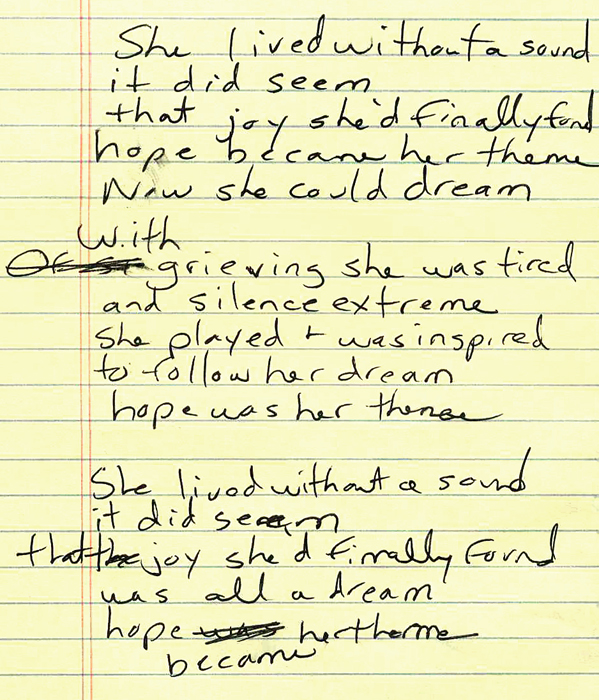 She lived without a sound
it did seem
that joy she'd finally found
hope became her theme
Now she could dream
With
grieving she was tired
and silence extreme
she played + was inspired
to follow her dream
hope was her theme
She lived without a sound
it did seem
that joy she'd finally found
was all a dream
hope was her theme
became